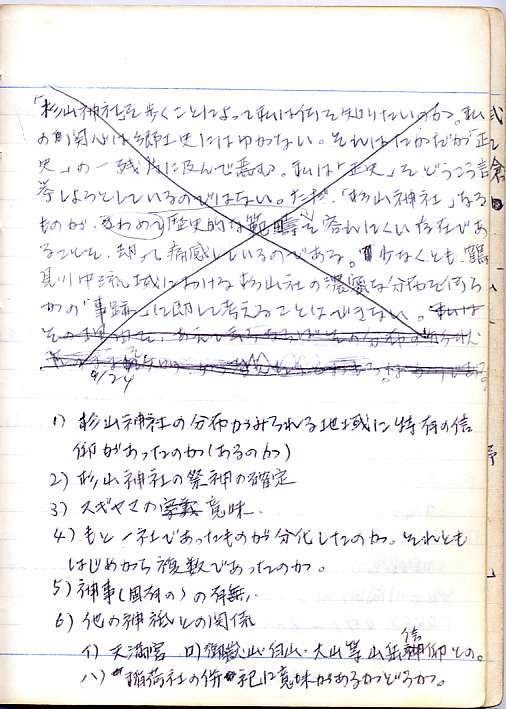 「杉山神社を歩くことによって私は何を知りたいのか。私
の関心は郷土史にはゆかない。それはたかだか「正
史」の一残片に及んで悪む。私は「正史」をどうこう言
挙しようとしているのではない。ただ、「杉山神社」なる
ものが、きわめて歴史的な範疇を容れにくい存在であ
ることを、却って痛感しているのである。少なくとも、鶴
見川中流域における杉山社の濃密な分布を何ら
かの「事跡」に即して考えることはできない。私は
9/24
1) 杉山神社の分布がみられる地域に特有の信
仰があったのか(あるのか)
2) 杉山神社の祭神の確定
3) スギヤマの意味.
4) もと一社であったものが分化したのか。それとも
はじめから複数であったのか。
5) 神事(固有の)の有無
6) 他の神社との関係
イ) 天満宮 ロ) 御嶽山・白山・大山等山岳信仰との。
ハ) 稲荷社の併祀に意味があるかどうか。